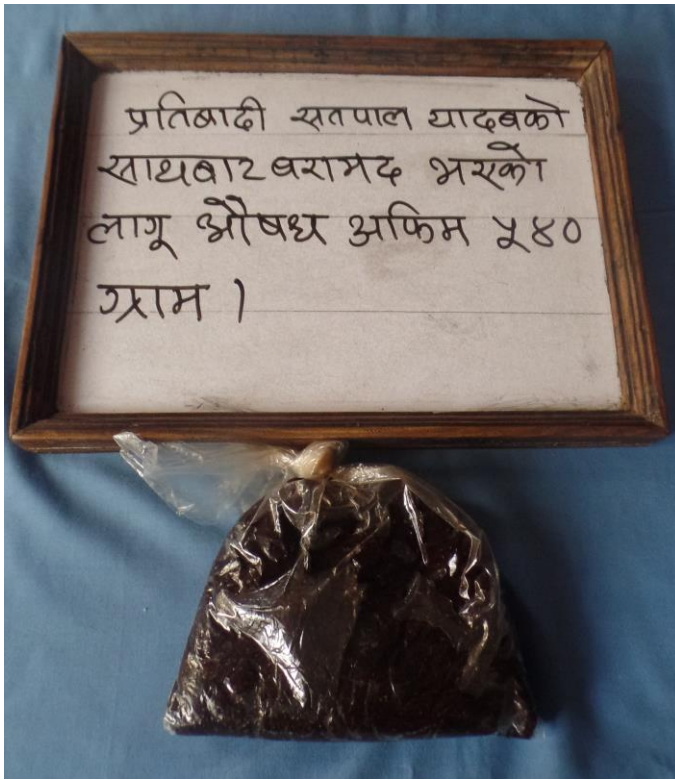 प्रतिबादी सतपाल यादबको
साथबाट बरामद भएको
लागू औषध अफिम ५४०
ग्राम ।